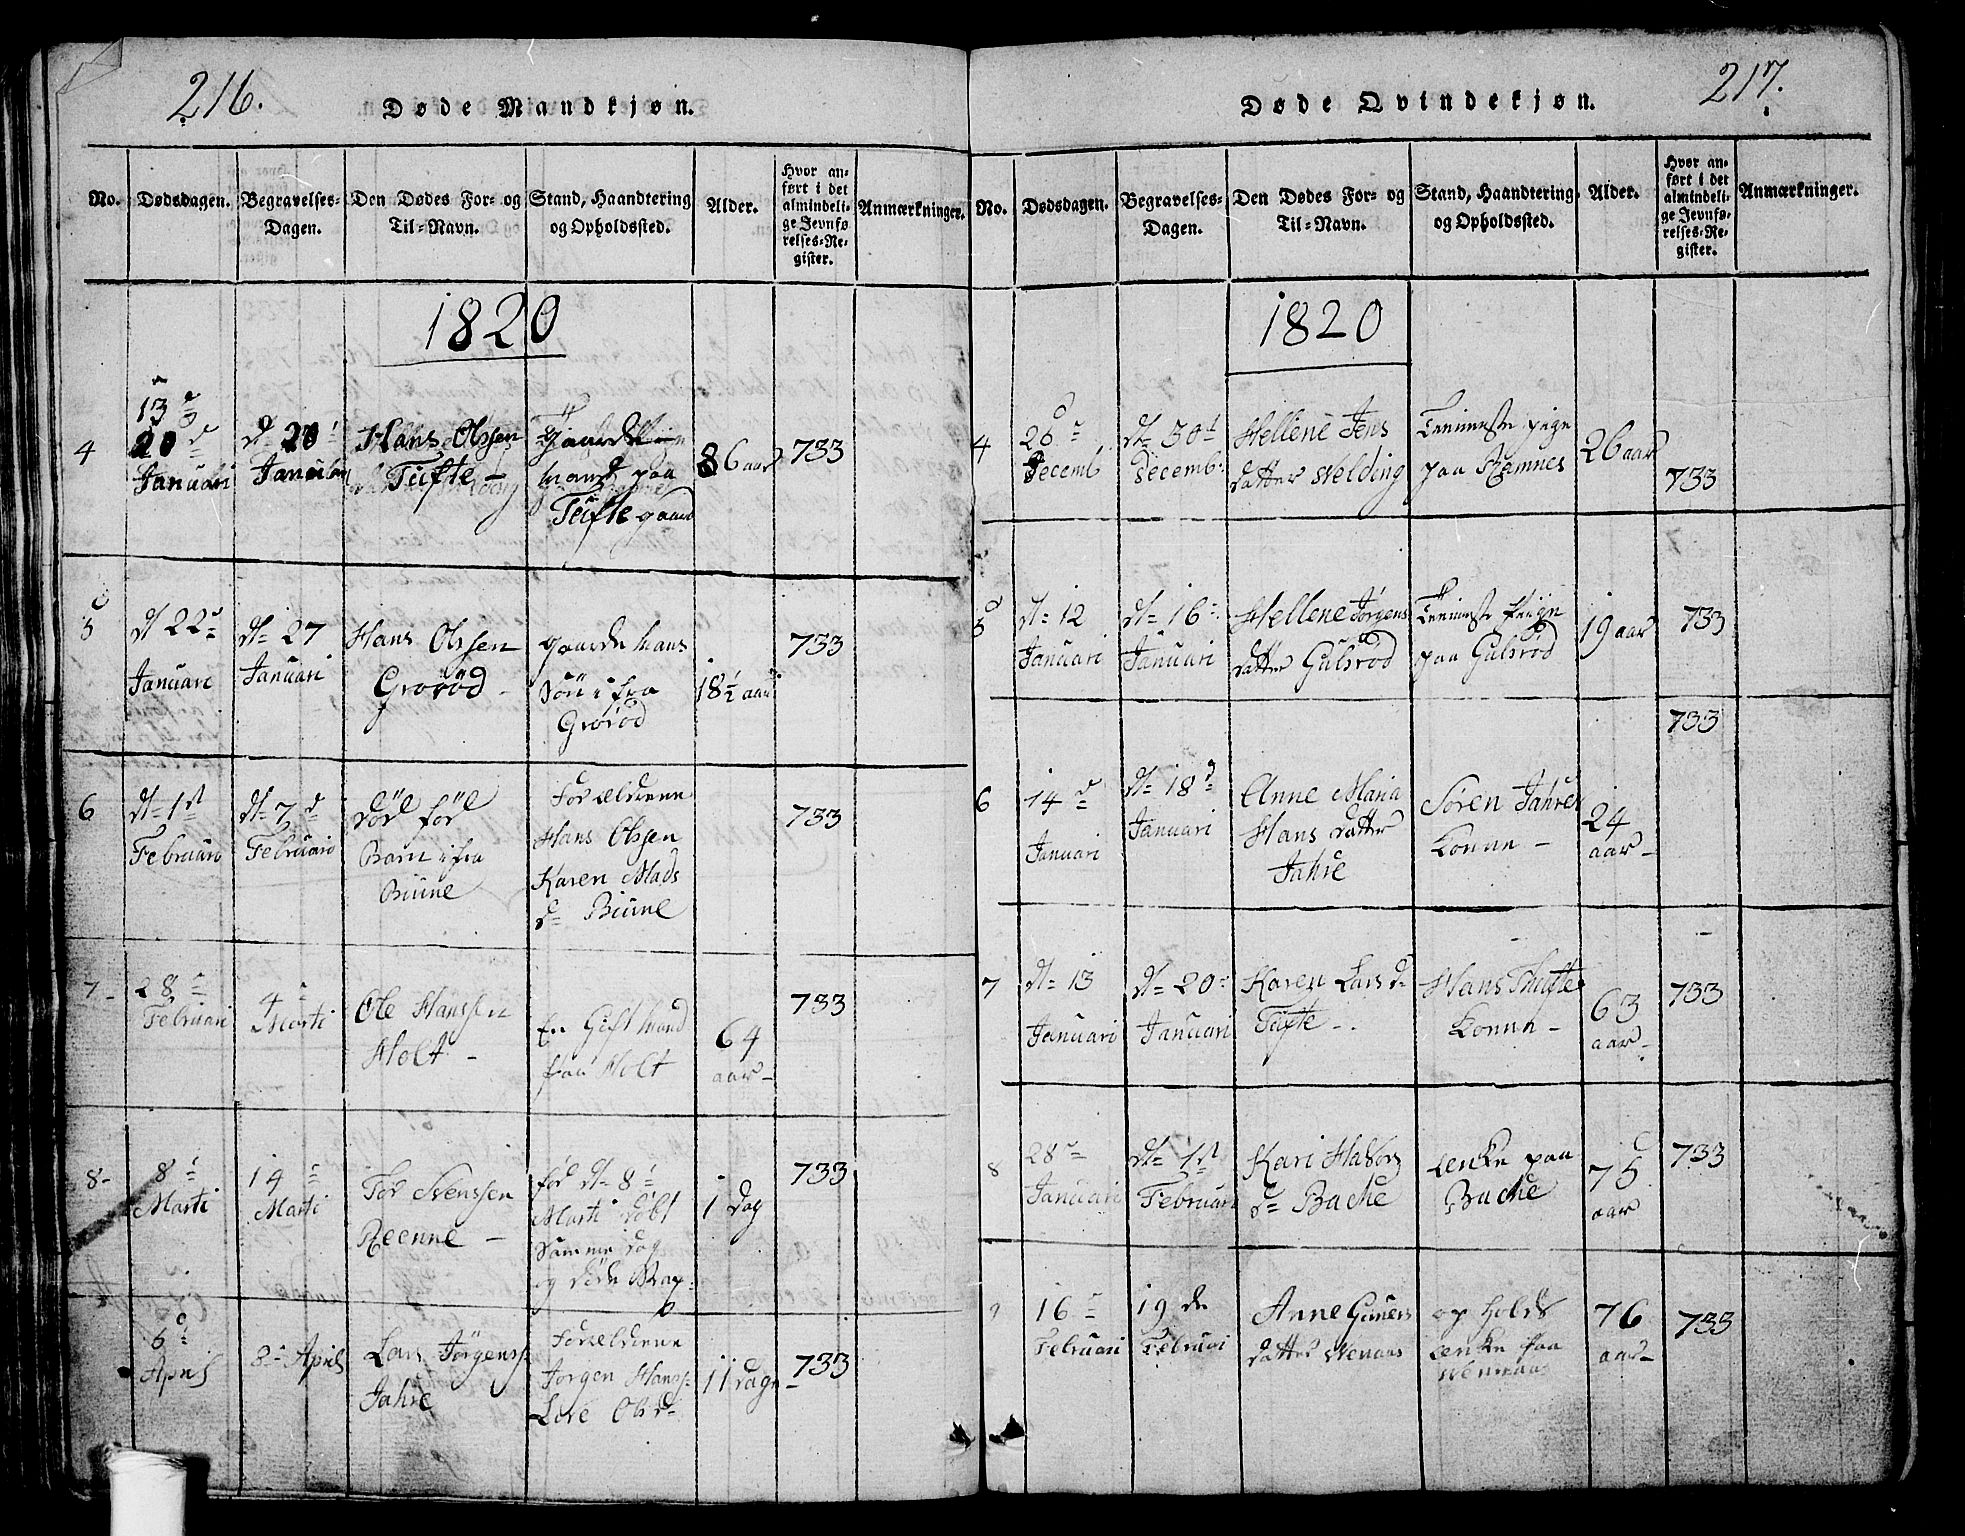 216.
Døde Mandkjøn.
No.
Dødsdagen.
Begravelses-
Dagen.
Den Dødes For- og
Til-Navn.
Stand, Haandtering
og Opholdssted.
Alder.
Hvor an-
ført i det
almindeli-
ge Jevnfø-
relses-Re-
gister.
Anmærkninger.
1820
4
13
20 d
Januari
d 20
Januari
Hans Olssen
Tufte -
Gaarde
mand paa
Tufte gaard
86 aar
733
5
dt 22
Januari
dt 27
Januari
Hans Olssen
Grorød -
gaarde Mans
Sön ifra
Grorod
18½ aar
733
6
dt 1st
Februari
dt 7 d
Februari
död fød
Barn ifra
Biüne
Forældrene
Hans Olssen
Karen Mads
d Biüne
733
7-
28
Februari
4
Marti
Ole Hanssen
Holt -
En Gift Mand
paa Holt
64
aar-
733
8-
8
Marti
14
Marti
Tor Svenssen
Reenne -
fød dt 8
Marti döbt
Samme Dag
og døde
1 dag
733
6
April
8 April
Lars Jörgenss
Jahre
Forældrene
Jorgen Hanss
Olsd
11 dage
733
217.
Døde Qvindekjøn.
No.
Dødsdagen.
Begravelses-
Dagen.
Den Dødes For- og
Til-Navn.
Stand, Haandtering
og Opholdssted.
Alder.
Hvor an-
ført i det
almindeli-
ge Jevnfø-
relses-Re-
gister.
Anmærkninger.
1820
4
26
Decemb
dt 30
Decemb:
Hellene Jens
datter Welding
pige
paa Ramnes
26 aar
733
5
dt 12
Januari
dt 16
Januari
Hellene Jörgens
datter Gulsrød
paa Gulsrød
19 aar
733
6
14 d
Januari
dt 18 d
Januari
Anne Maria
Hans datter
Jahre
Søren Jahres
Konne -
24
aar -
733
7
dt 13
Januari
dt 20
Januari
Karen Lars d
Tüfte -.
Hans Thufte
Konne -
63
aar -
733
8
28
Januari
dt 1st
Februari
Kari Halvors
d Bache
enke paa
Bache
75
aar
733
9
16
Februari
19 de
Februari
Anne Guners
datter Wenaas
op holds
enke paa
76
aar -
733